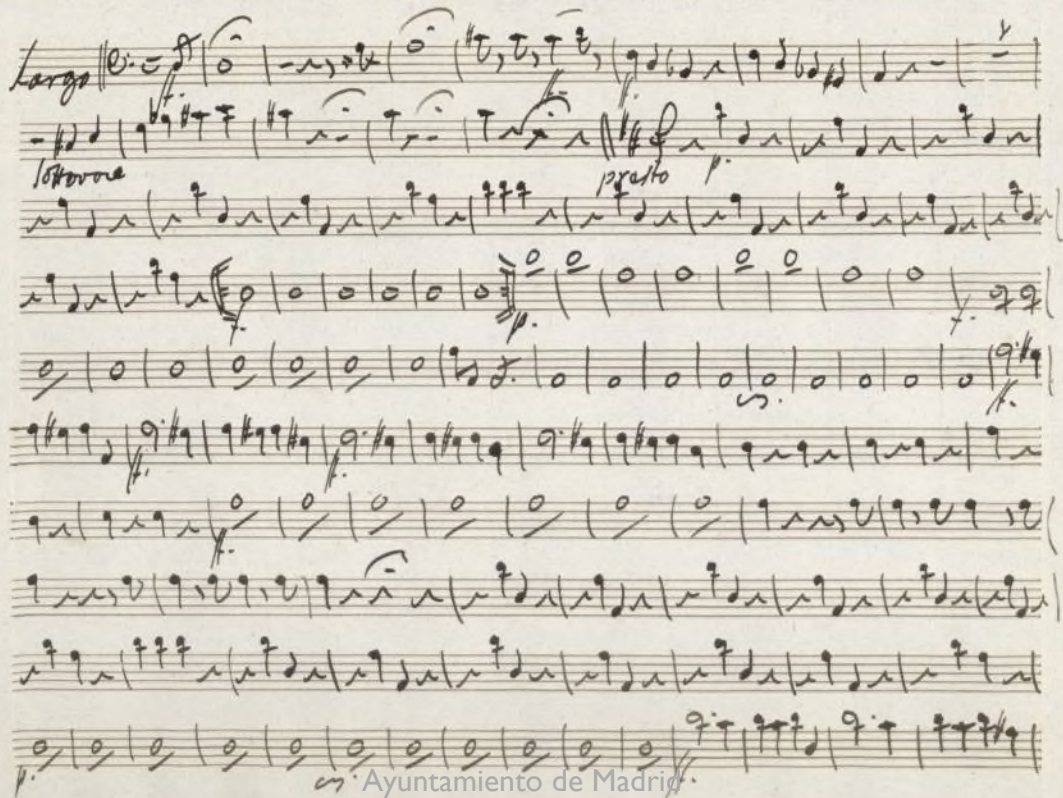 Largo
f. f. f.
sottovoce presto p.
f. p. f.
cres. f.
f. f.
f.
p. cres. f.
Ayuntamiento de Madrid